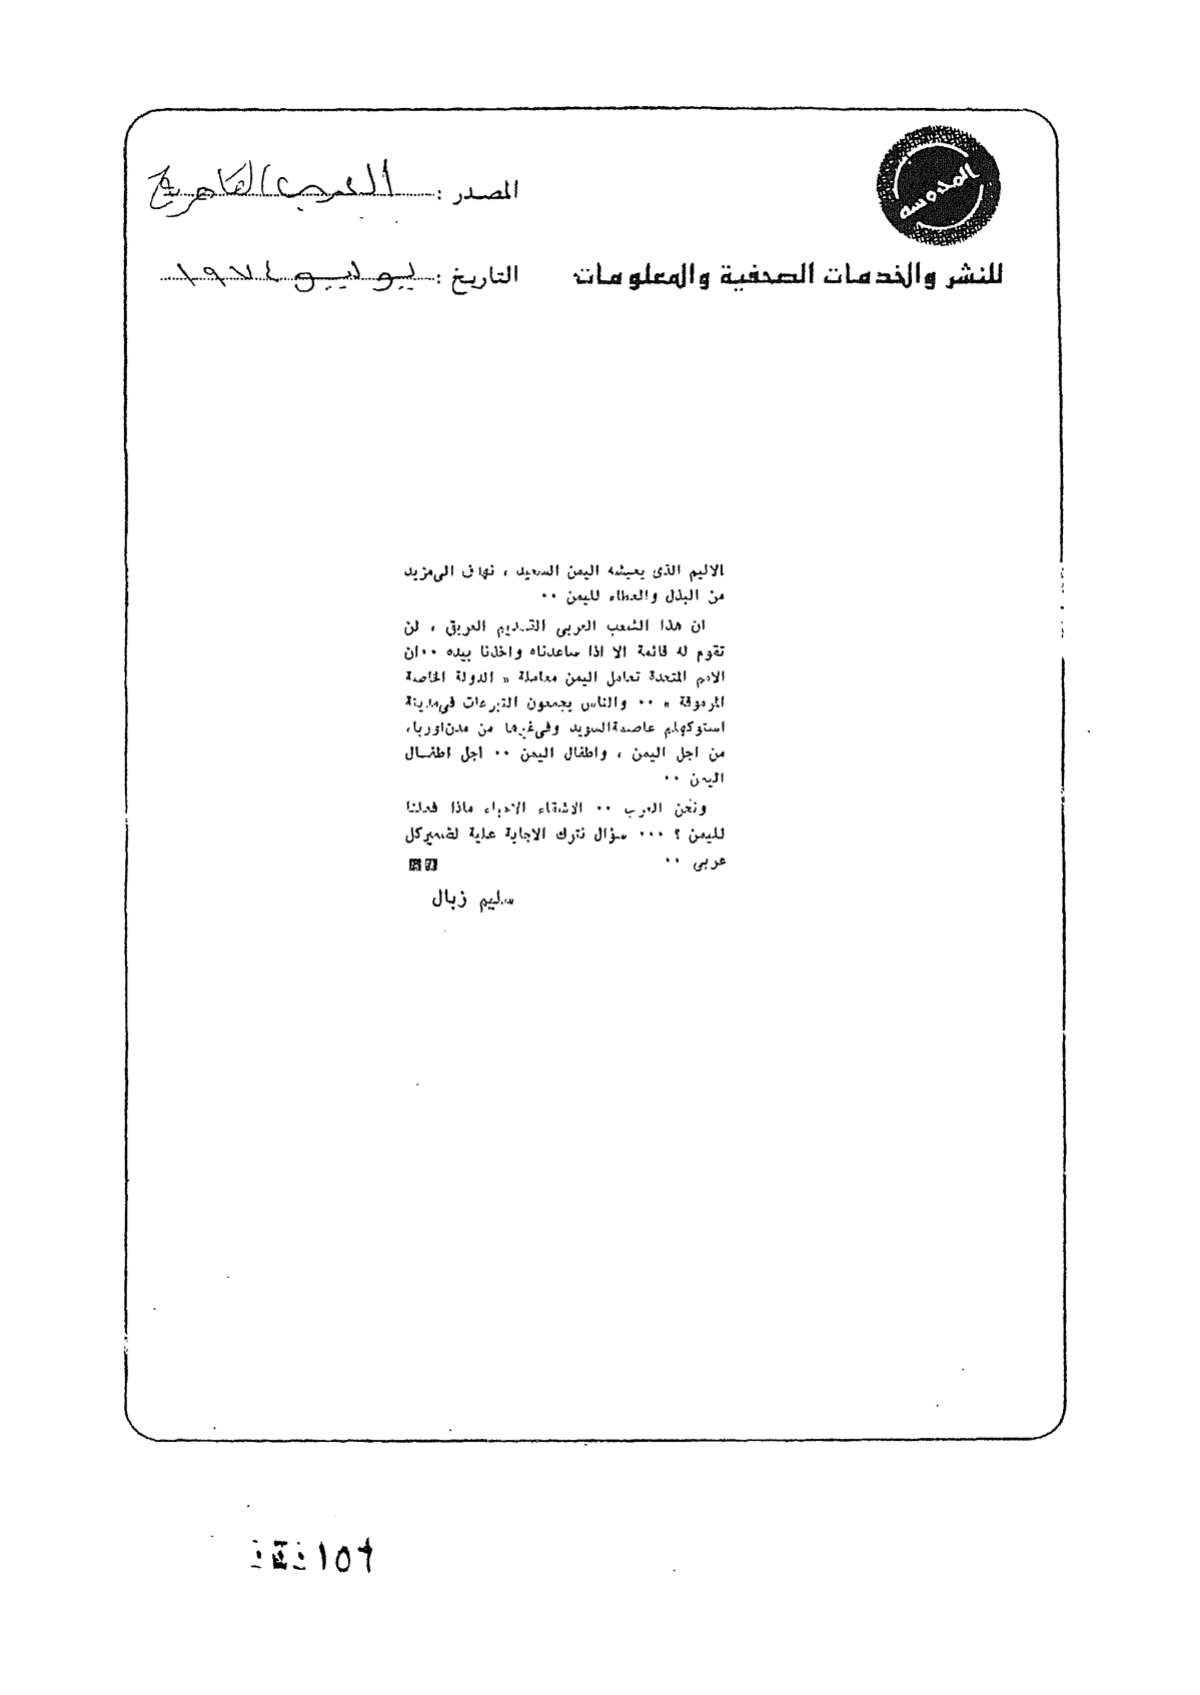 المحروسة
المصدر : العرب القاهرية
للنشر والخدمات الصحفية والمعلومات
التاريخ : يوليو ١٩٧٤
الاليم الذى يعيشه اليمن السعيد ، نهاف الى مزيد
من البذل والعطاء لليمن ٠٠
ان هذا الشعب العربى القديم العريق ، لن
تقوم له قائمة الا اذا ساعدناه واخذنا بيده ٠٠ ان
الامم المتحدة تعامل اليمن معاملة « الدولة الخاصة
المرموقة » ٠٠ والناس يجمعون التبرعات فى مدينة
استوكهلم عاصمة السويد وفى غيرها من مدن اوربا ،
من اجل اليمن ، واطفال اليمن ٠٠ اجل اطفال
اليمن ٠٠
ونحن العرب ٠٠ الاشقاء الاحياء ماذا فعلنا
لليمن ؟ ٠٠٠ سؤال نترك الاجابة علية لضمير كل
عربى ٠٠
سليم زبال